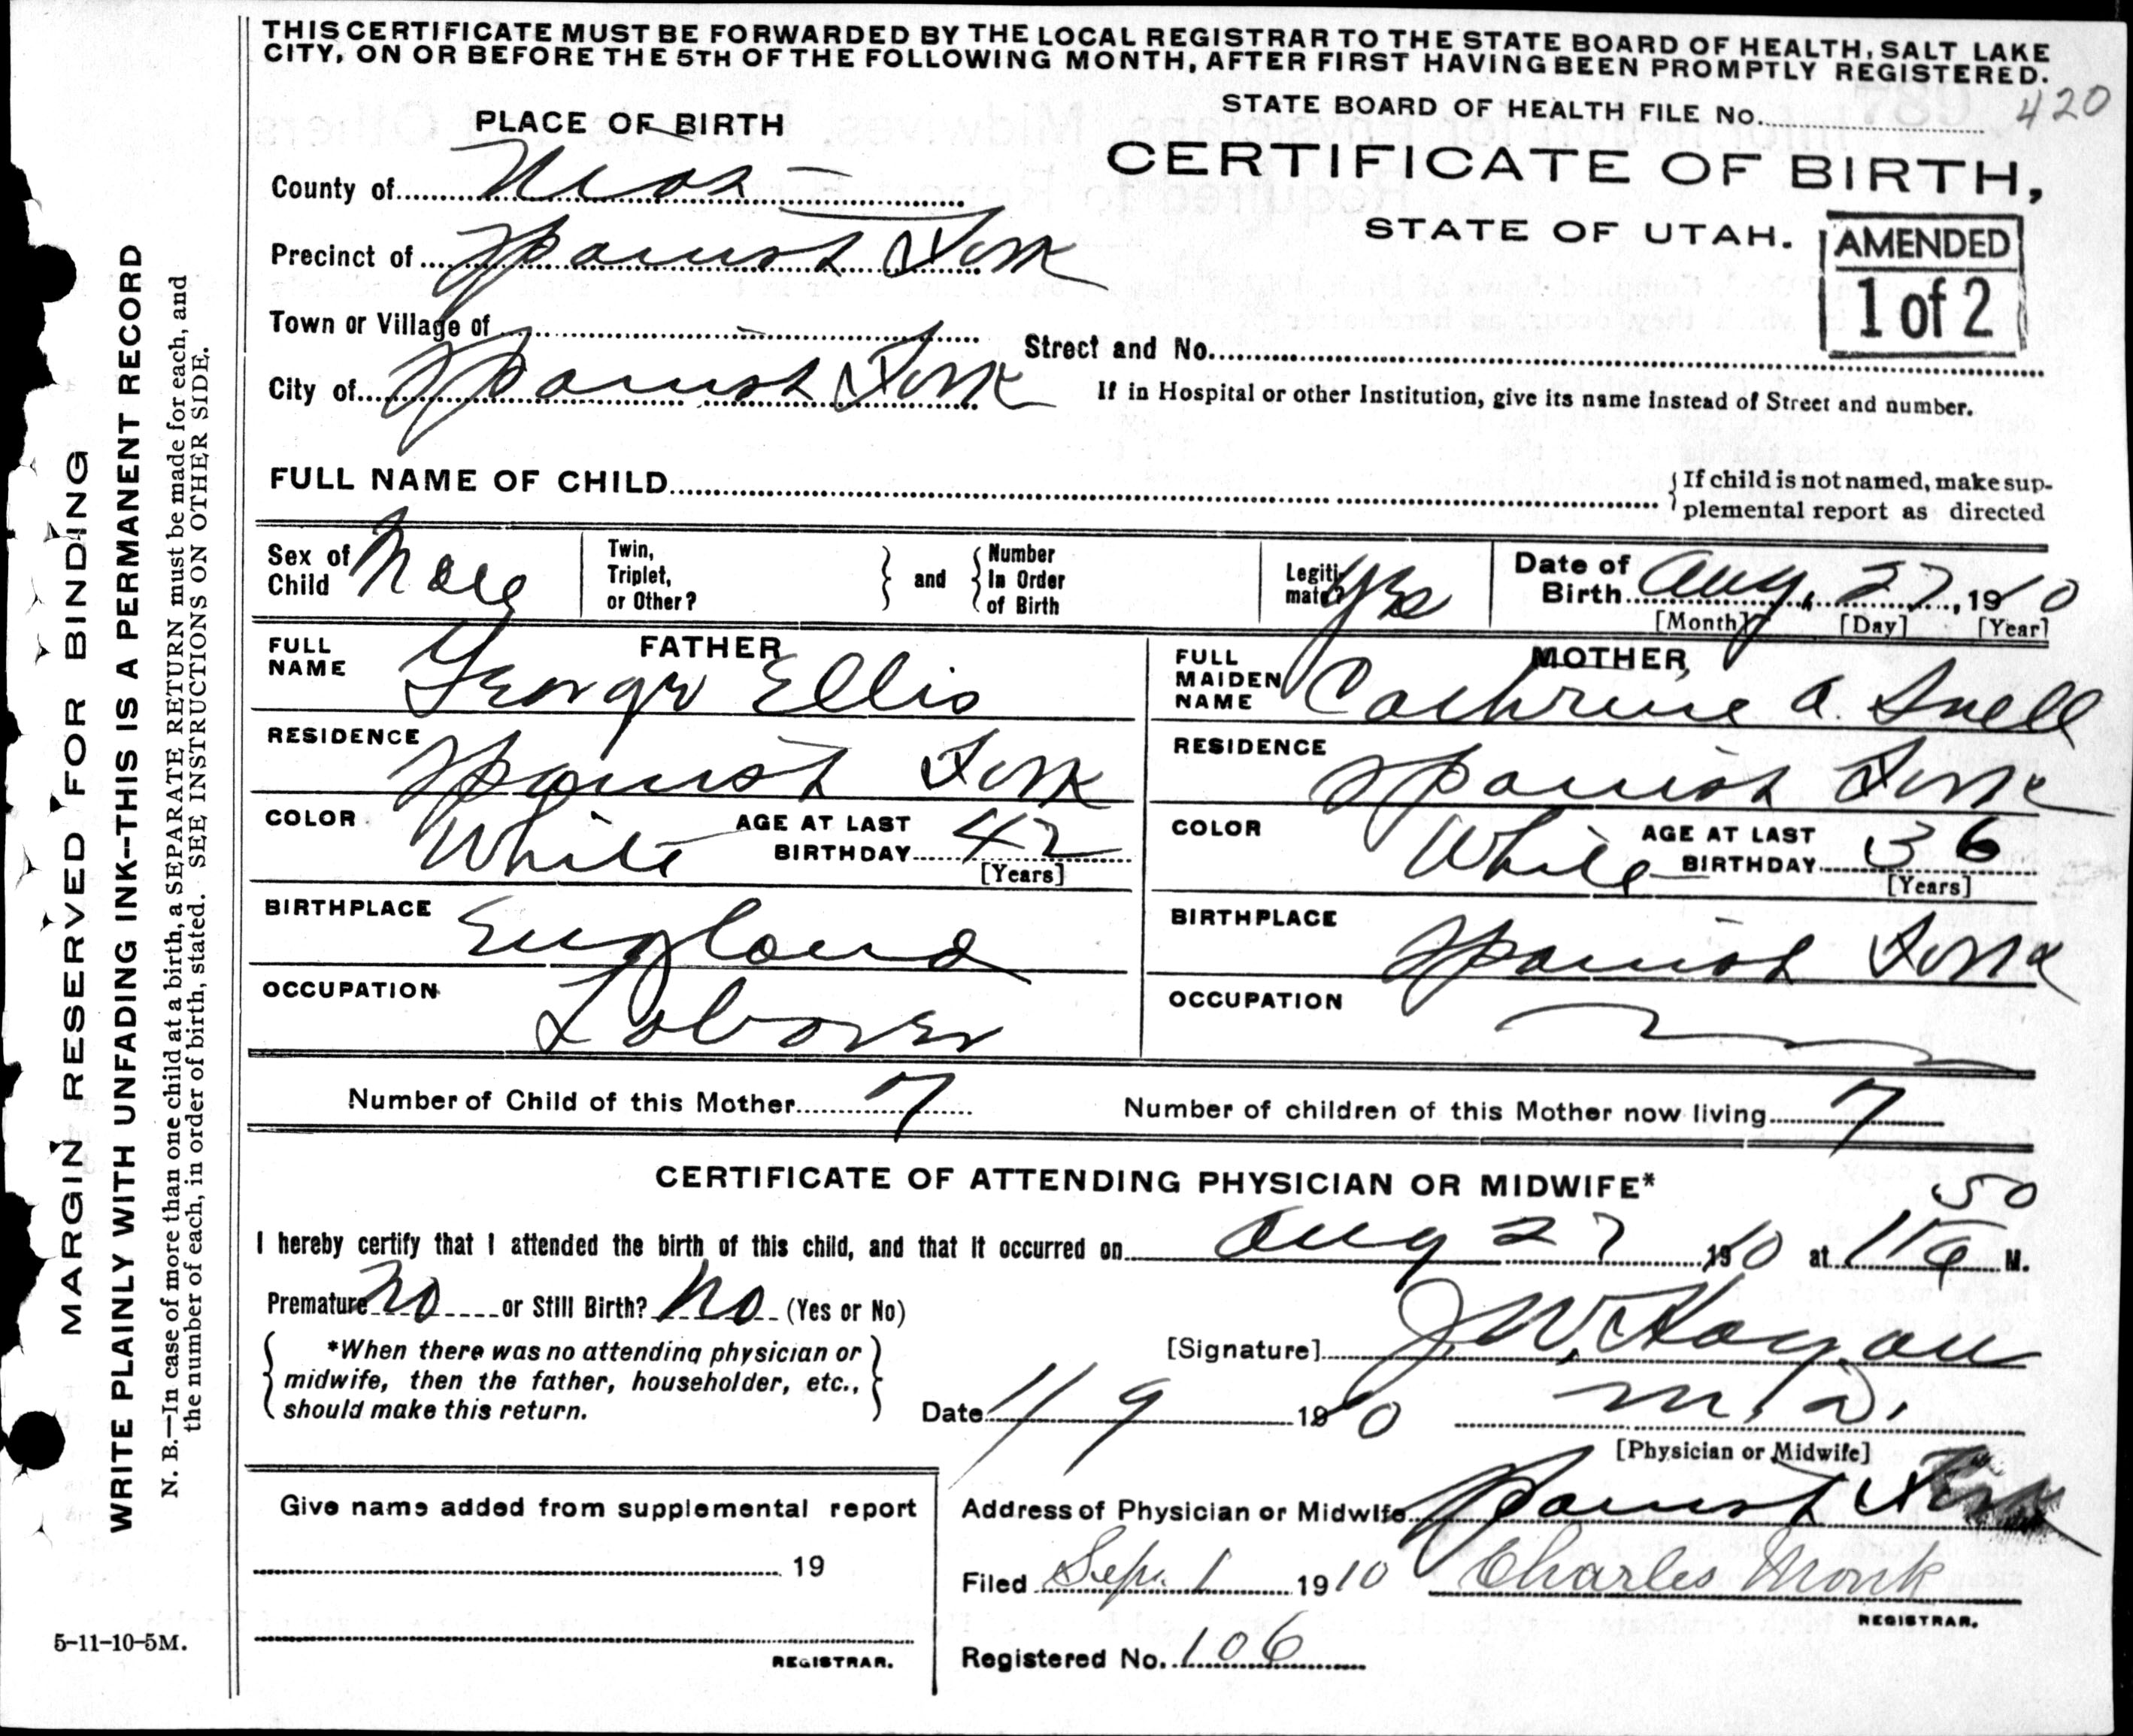 THIS CERTIFICATE MUST BE FORWARDED BY THE LOCAL REGISTRAR TO THE STATE BOARD OF HEALTH, SALT LAKE
CITY, ON OR BEFORE THE 5TH OF THE FOLLOWING MONTH, AFTER FIRST HAVING BEEN PROMPTLY REGISTERED.
STATE BOARD OF HEALTH FILE No. 420
PLACE OF BIRTH
CERTIFICATE OF BIRTH,
STATE OF UTAH.
AMENDED
1 of 2
County of
Precinct of Spanish Fork
Town or Village of
Street and No.
City of Spanish Fork
If in Hospital or other Institution, give its name instead of Street and number.
FULL NAME OF CHILD
If child is not named, make sup-
plemental report as directed
Sex of Child Male
Twin, Triplet, or Other?
and
Number In Order of Birth
Legiti mate? Yes
Date of Birth Aug. 27, 1910
[Month] [Day] [Year]
FATHER
FULL NAME George Ellis
RESIDENCE Spanish Fork
COLOR White
AGE AT LAST BIRTHDAY 42
[Years]
BIRTHPLACE England
OCCUPATION Laborer
MOTHER
FULL MAIDEN NAME Cathrine A. Snell
RESIDENCE Spanish Fork
COLOR White
AGE AT LAST BIRTHDAY 36
[Years]
BIRTHPLACE Spanish Fork
OCCUPATION
Number of Child of this Mother 7
Number of children of this Mother now living 7
CERTIFICATE OF ATTENDING PHYSICIAN OR MIDWIFE*
I hereby certify that I attended the birth of this child, and that it occurred on Aug 27 1910 at 11 50 a M.
Premature no or Still Birth? no (Yes or No)
*When there was no attending physician or
midwife, then the father, householder, etc.,
should make this return.
[Signature] J. W. Hagan
Date 1910 M. D.
[Physician or Midwife]
Give name added from supplemental report
19
REGISTRAR.
Address of Physician or Midwife Spanish Fork
Filed Sep. 1 1910 Charles Monk
REGISTRAR.
Registered No. 106
5-11-10-5M.
MARGIN RESERVED FOR BINDING
WRITE PLAINLY WITH UNFADING INK--THIS IS A PERMANENT RECORD
N. B.—In case of more than one child at a birth, a SEPARATE RETURN must be made for each, and
the number of each, in order of birth, stated. SEE INSTRUCTIONS ON OTHER SIDE.